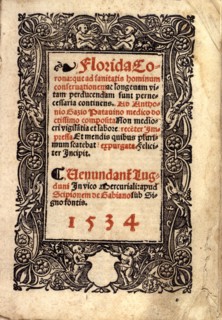 Florida Co-
rona: que ad sanitatis hominum
conseruationem ac longeuam vi-
tam perducendam sunt perne-
cessaria continens. Ab Antho-
nio Gazio Patauino medico do-
ctissimo composita Non medio-
cri vigilantia et labore: recēter Im-
pressa. Et mendis quibus pluri-
mum scatebat: expurgata Felici-
ter Incipit.
Veneundant Lug-
duni In vico Mercuriali apud
Scipionem de Gabiano sub Si-
gno fontis.
1534